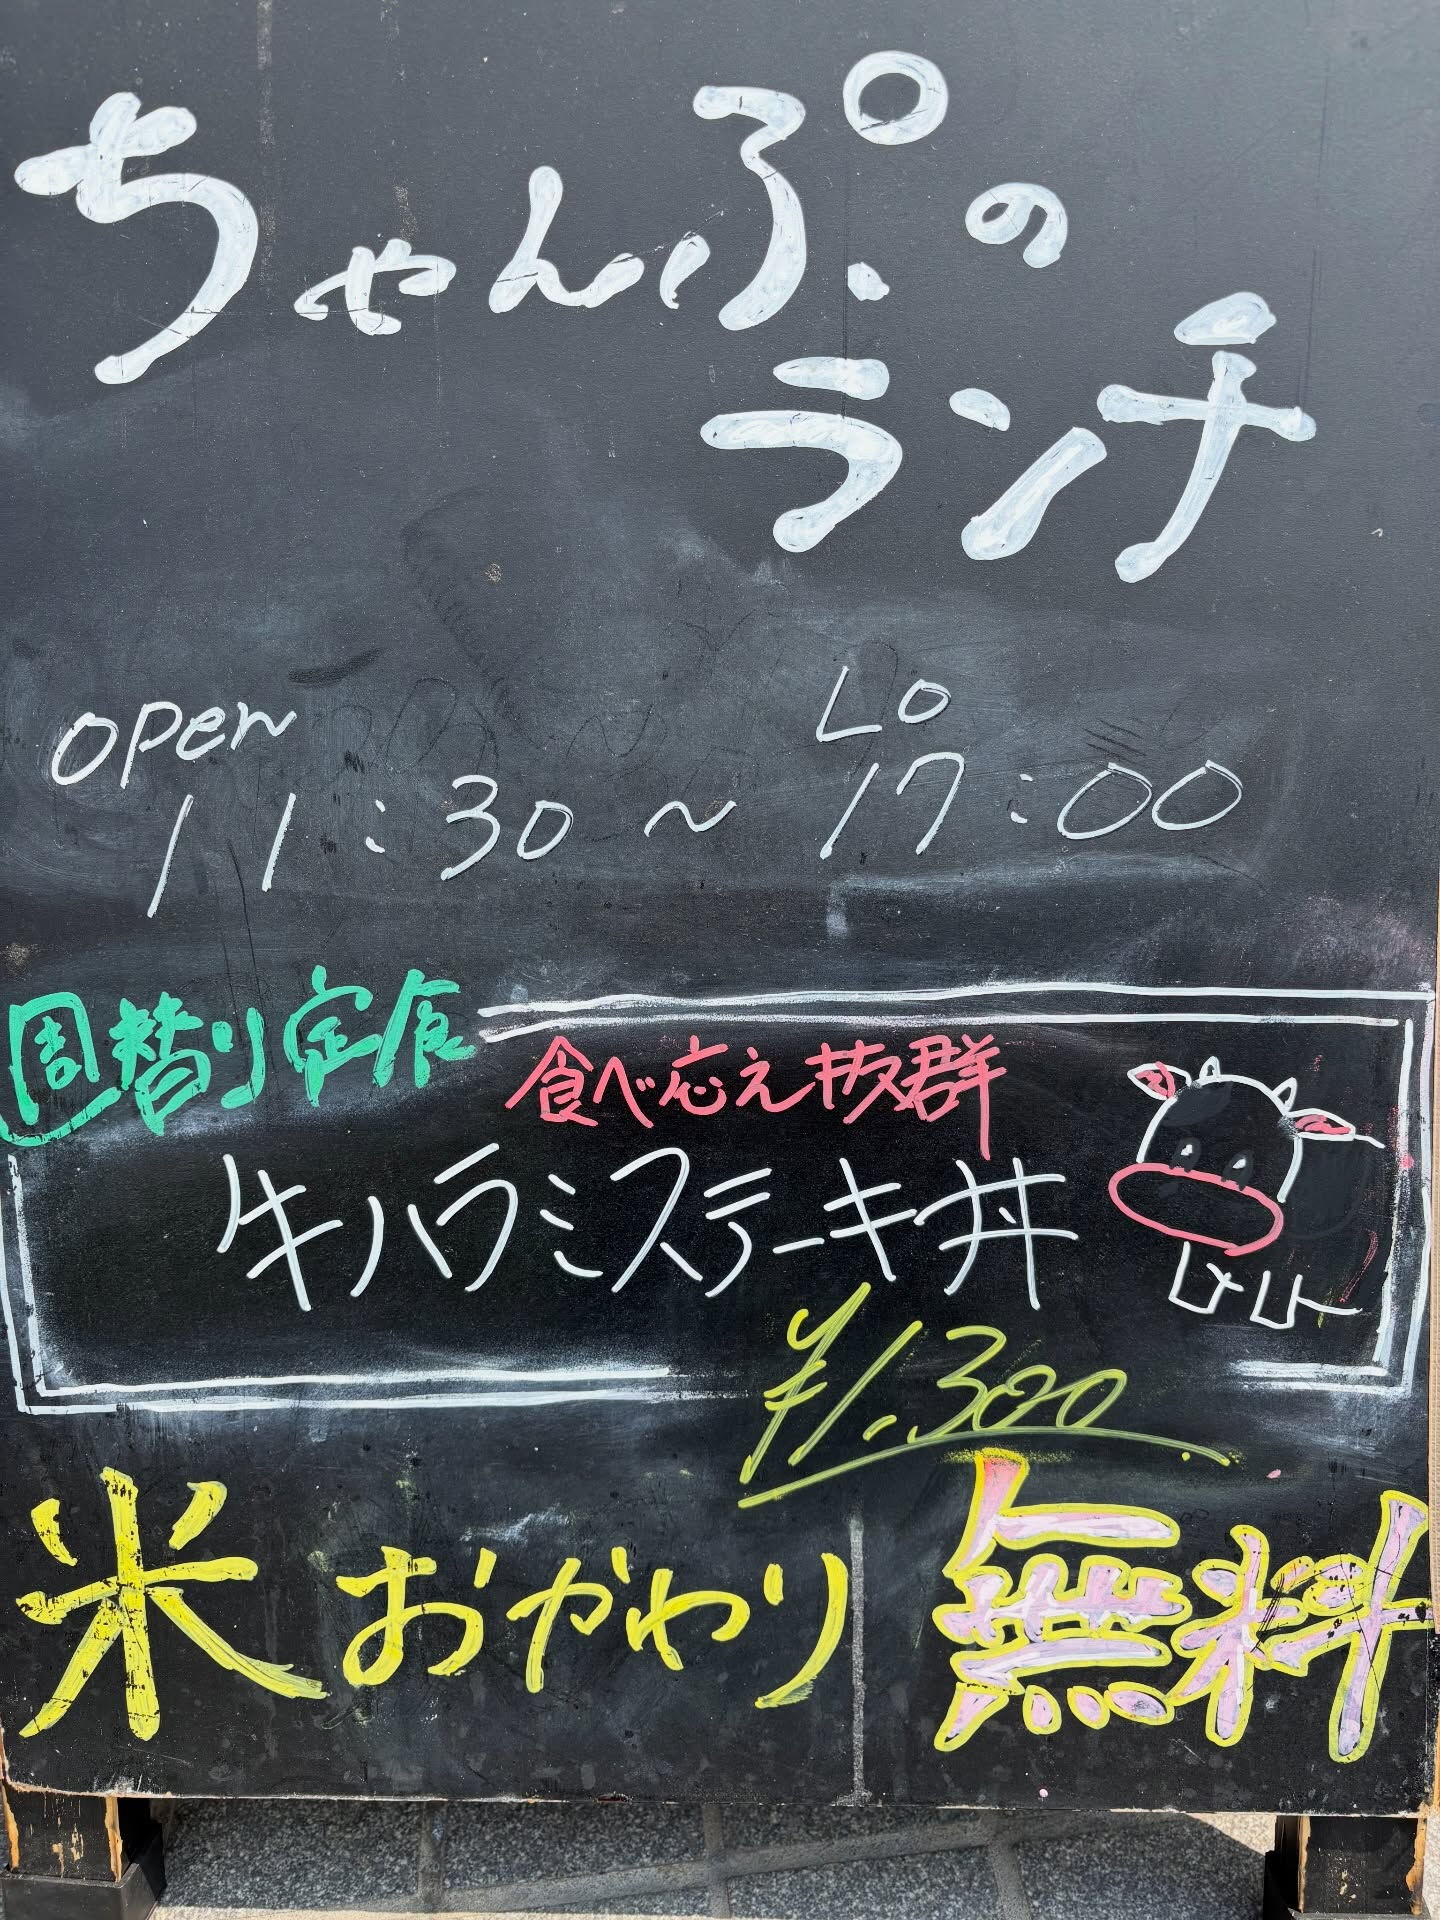 ちゃんぷの
ランチ
open LO
11:30～17:00
週替り定食
食べ応え抜群
牛ハラミステーキ丼
¥1,300
米おかわり 無料